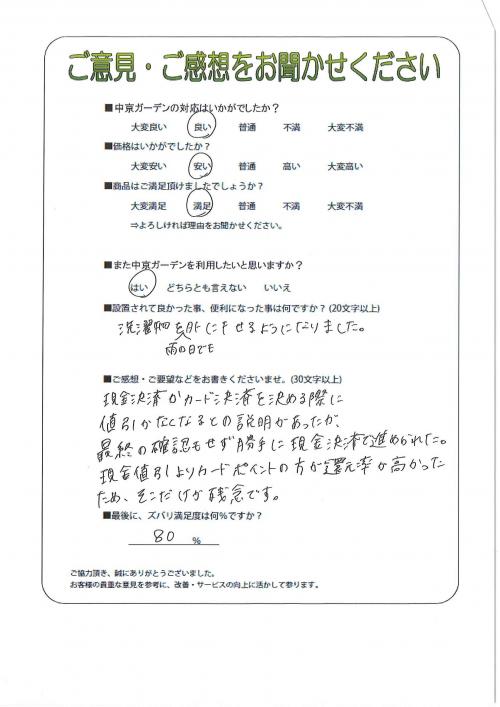 ご意見・ご感想をお聞かせください
■中京ガーデンの対応はいかがでしたか？
大変良い 良い 普通 不満 大変不満
■価格はいかがでしたか？
大変安い 安い 普通 高い 大変高い
■商品はご満足頂けましたでしょうか？
大変満足 満足 普通 不満 大変不満
⇒よろしければ理由をお聞かせください。
■また中京ガーデンを利用したいと思いますか？
はい どちらとも言えない いいえ
■設置されて良かった事、便利になった事は何ですか？(20文字以上)
洗濯物を外にほせるようになりました。
雨の日でも
■ご感想・ご要望などをお書きくださいませ。(30文字以上)
現金決済かカード決済を決める際に
値引がなくなるとの説明があったが、
最終の確認もせず勝手に現金決済で進められた。
現金値引よりカードポイントの方が還元率が高かった
ため、そこだけが残念です。
■最後に、ズバリ満足度は何％ですか？
80 %
ご協力頂き、誠にありがとうございました。
お客様の貴重な意見を参考に、改善・サービスの向上に活かして参ります。